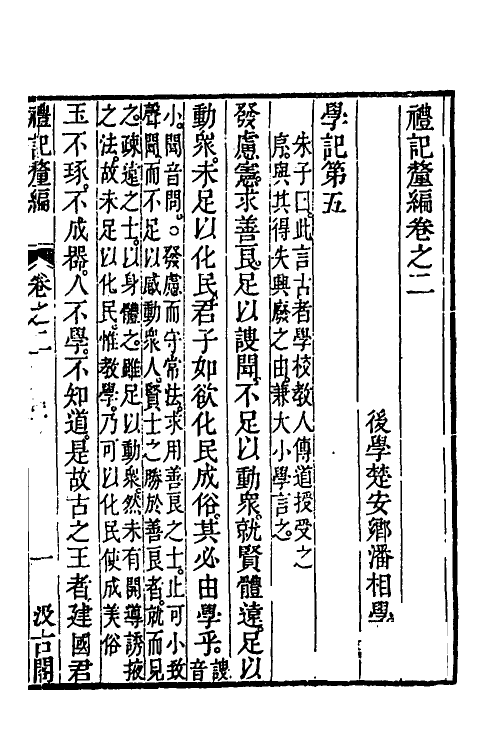 禮記釐編卷之二
後學楚安鄉潘相學
學記第五
朱子曰。此言古者學校教人傳道授受之
序。與其得失興廢之由。兼大小學言之。
發慮憲。求善良。足以謏聞。不足以動衆。就賢體遠。足以
動衆。未足以化民。君子如欲化民成俗。其必由學乎。謏音
小。聞音問。○發慮而守常法。求用善良之士。止可小致
聲聞。而不足以感動衆人。賢士之勝於善良者。就而見
之。疎遠之士。以身體之。雖足以動衆。然未有開導誘掖
之法。故未足以化民。惟教學。乃可以化民使成美俗
玉不琢。不成器。人不學。不知道。是故古之王者建國君
禮記釐編
卷之二
一
汲古閣